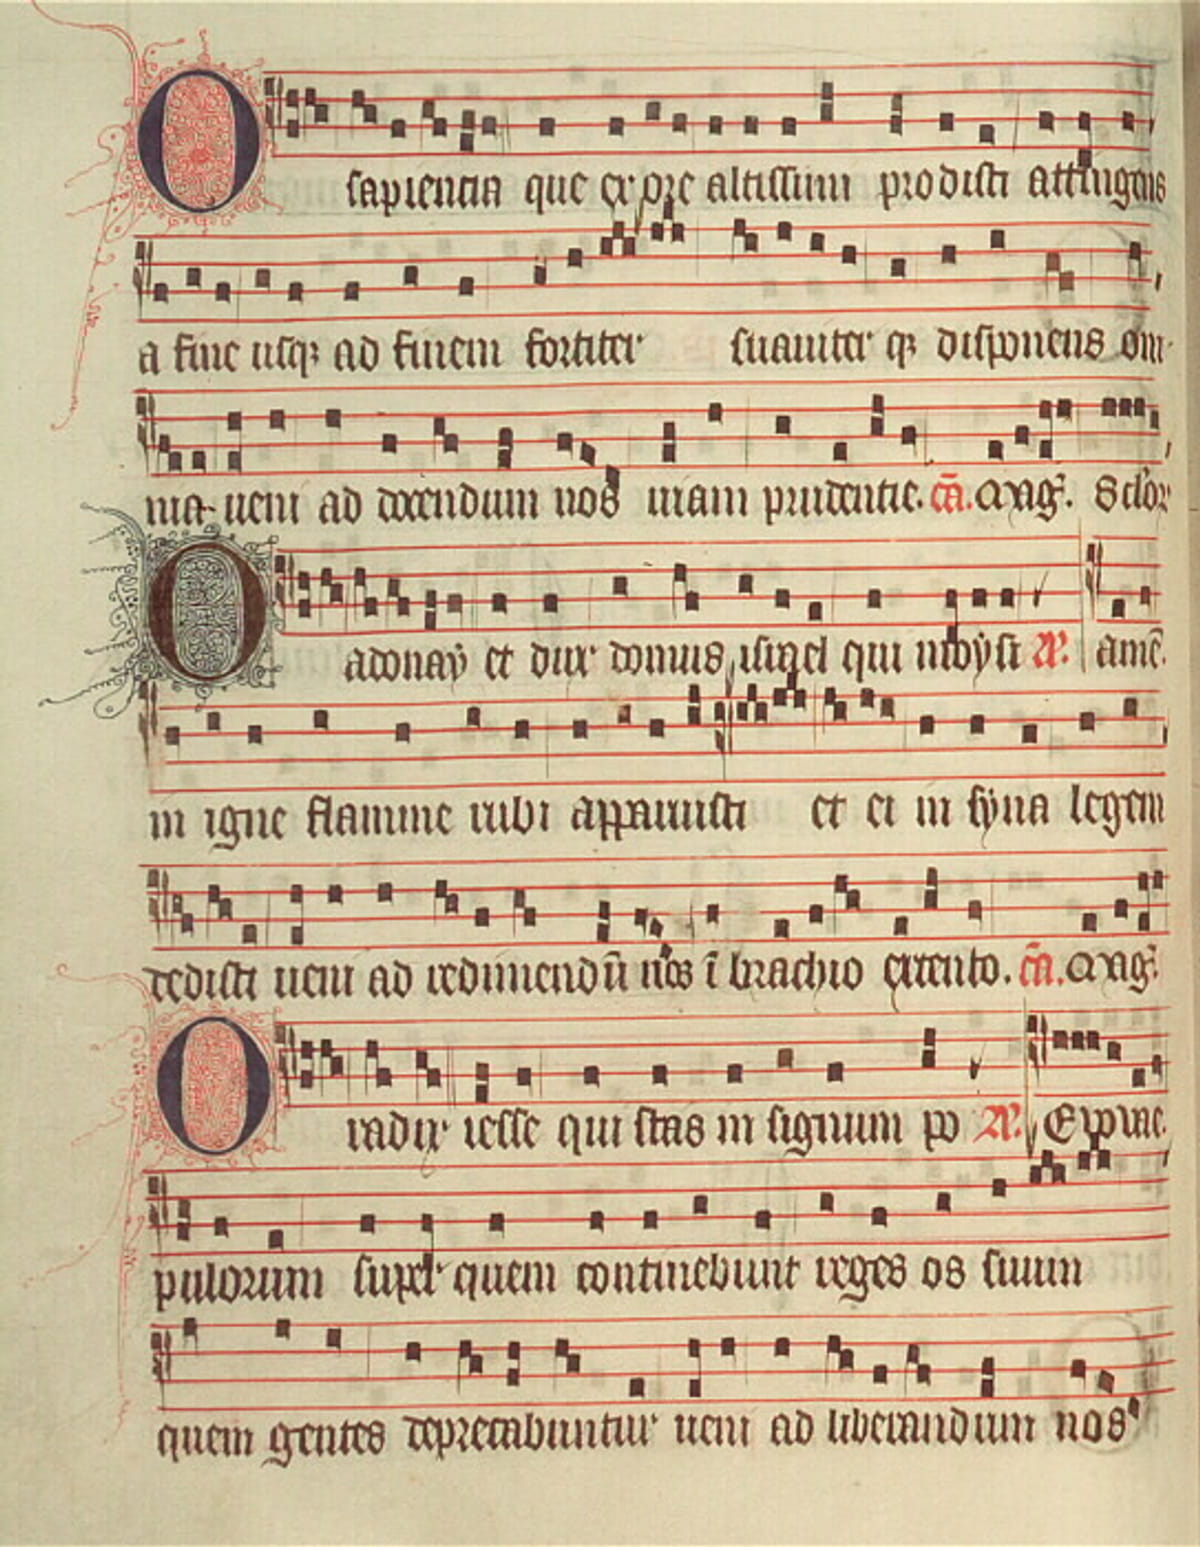 O sapiencia que ex ore altissimi prodisti attingens
a fine usq; ad finem fortiter suauiter q; disponens om
nia ueni ad docendum nos uiam prudentie. cā. Mag̃.
O adonay et dux domus israel qui moysi amē.
in igne flamme rubi apparuisti et ei in syna legem
dedisti ueni ad redimendū nos ī brachio extento. cā. Mag̃.
O radix iesse qui stas in signum po
pulorum super quem continebunt reges os suum
quem gentes deprecabuntur ueni ad liberandum nos